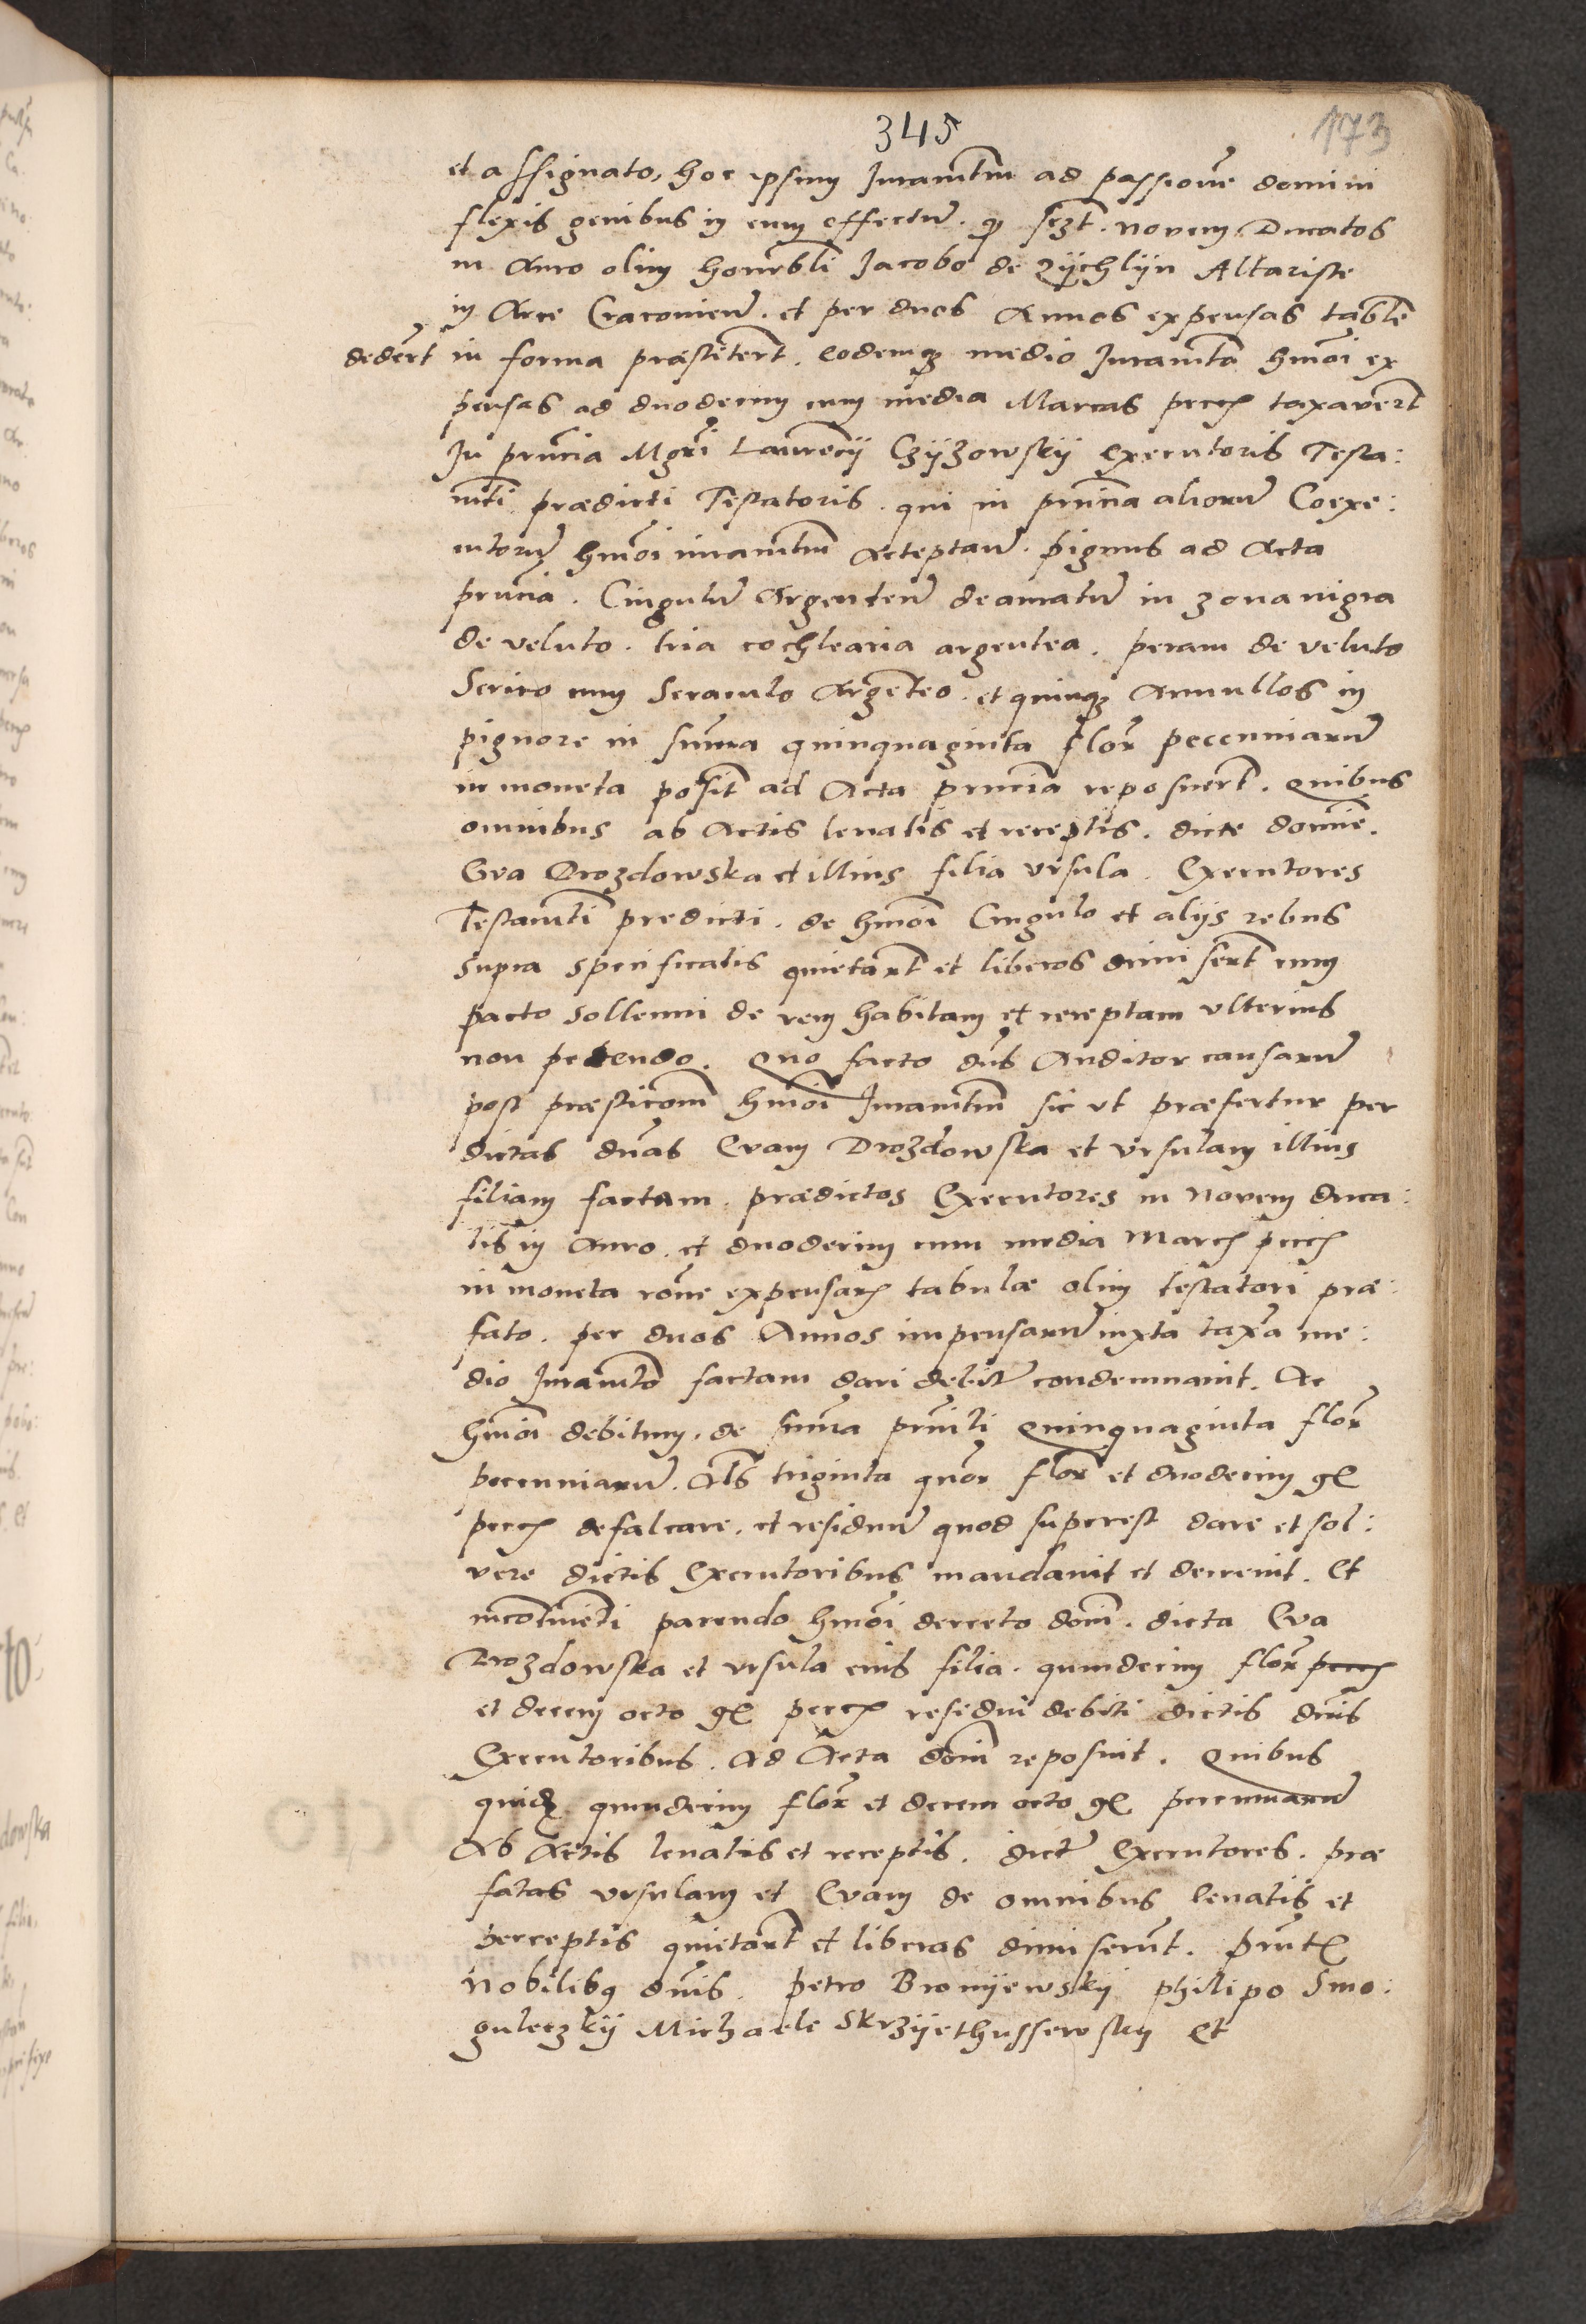 345
173
et assignato, hoc ipsum Juramtm ad passione domini
flexis genibus in eum effectu. q sczt. novem Ducatos
in Auro olim honrabli Jacobo de Zychlyn Altariste
in Arce Cracovien. et per duos Annos expensas table
dedert in forma præstitert. eodemq medio Juramto hmoi ex
pensas ad duodecim cum media Marcas pecc taxavert
In prncia Mgri Laurecij Czyzowskij Executoris Testa:
mti prædicti Testatoris. qui in prncia alioru Coexe:
cutoru hmoi iuramtm Acceptaru. pignus ad Acta
prncia. Cingulu Argenteu deauratu in zona nigra
de veluto. tria cochlearia argentea. peram de veluto
Serico cum Seraculo Argeteo. et quinq Annullos in
pignore in suma quinquaginta flor peccuniaru
in moneta posit ad Acta prncia reposuert. Quibus
omnibus ab Actis levatis et receptis. dicte domine.
Eva Drozdowska et illius filia Ursula. Executores
Testamti predicti. de hmoi Cingulo et alijs rebus
supra specificatis quietart et liberos dimisert cum
pacto sollenni de rem habitam et receptam ulterius
non petendo. Quo facto dns Auditor causaru
post præsticom hmoi Juramtm sic ut præfertur per
dictas dnas Evam Drozdowska et Ursulam illius
filiam factam. prædictos Executores in novem duca:
tis in Auro. et duodecim cum media Marc pecc
in moneta rone expensar tabulæ olim testatori præ:
fato. per duos Annos impensaru iuxta taxa me:
dio Juramto factam dari debit condemnavit. Ac
hmoi debitum. de suma prnti Quinquaginta flor
peccuniaru. Als triginta quor flor et duodecim gr
pecc defalcare. et residuu quod superest dare et sol:
vere dictis Executoribus mandavit et decrevit. Et
incontineti parendo hmoi decreto domi. dicta Eva
Drozdowska et Ursula eius filia. quindecim flor pecc
et decem octo gr pecc residui debiti dictis dnis
Executoribus. Ad Acta domi reposuit. Quibus
quid quindecim flor et decem octo gr peccuniaru
Ab Actis levatis et receptis. dict Executores. præ
fatas Ursulam et Evam de omnibus levatis et
perceptis quietart et liberas dimiserut. prnt
Nobilibq dnis. Petro Bronijewskij Philipo Smo:
guleczkij Michaele Skrzijethussewskij et